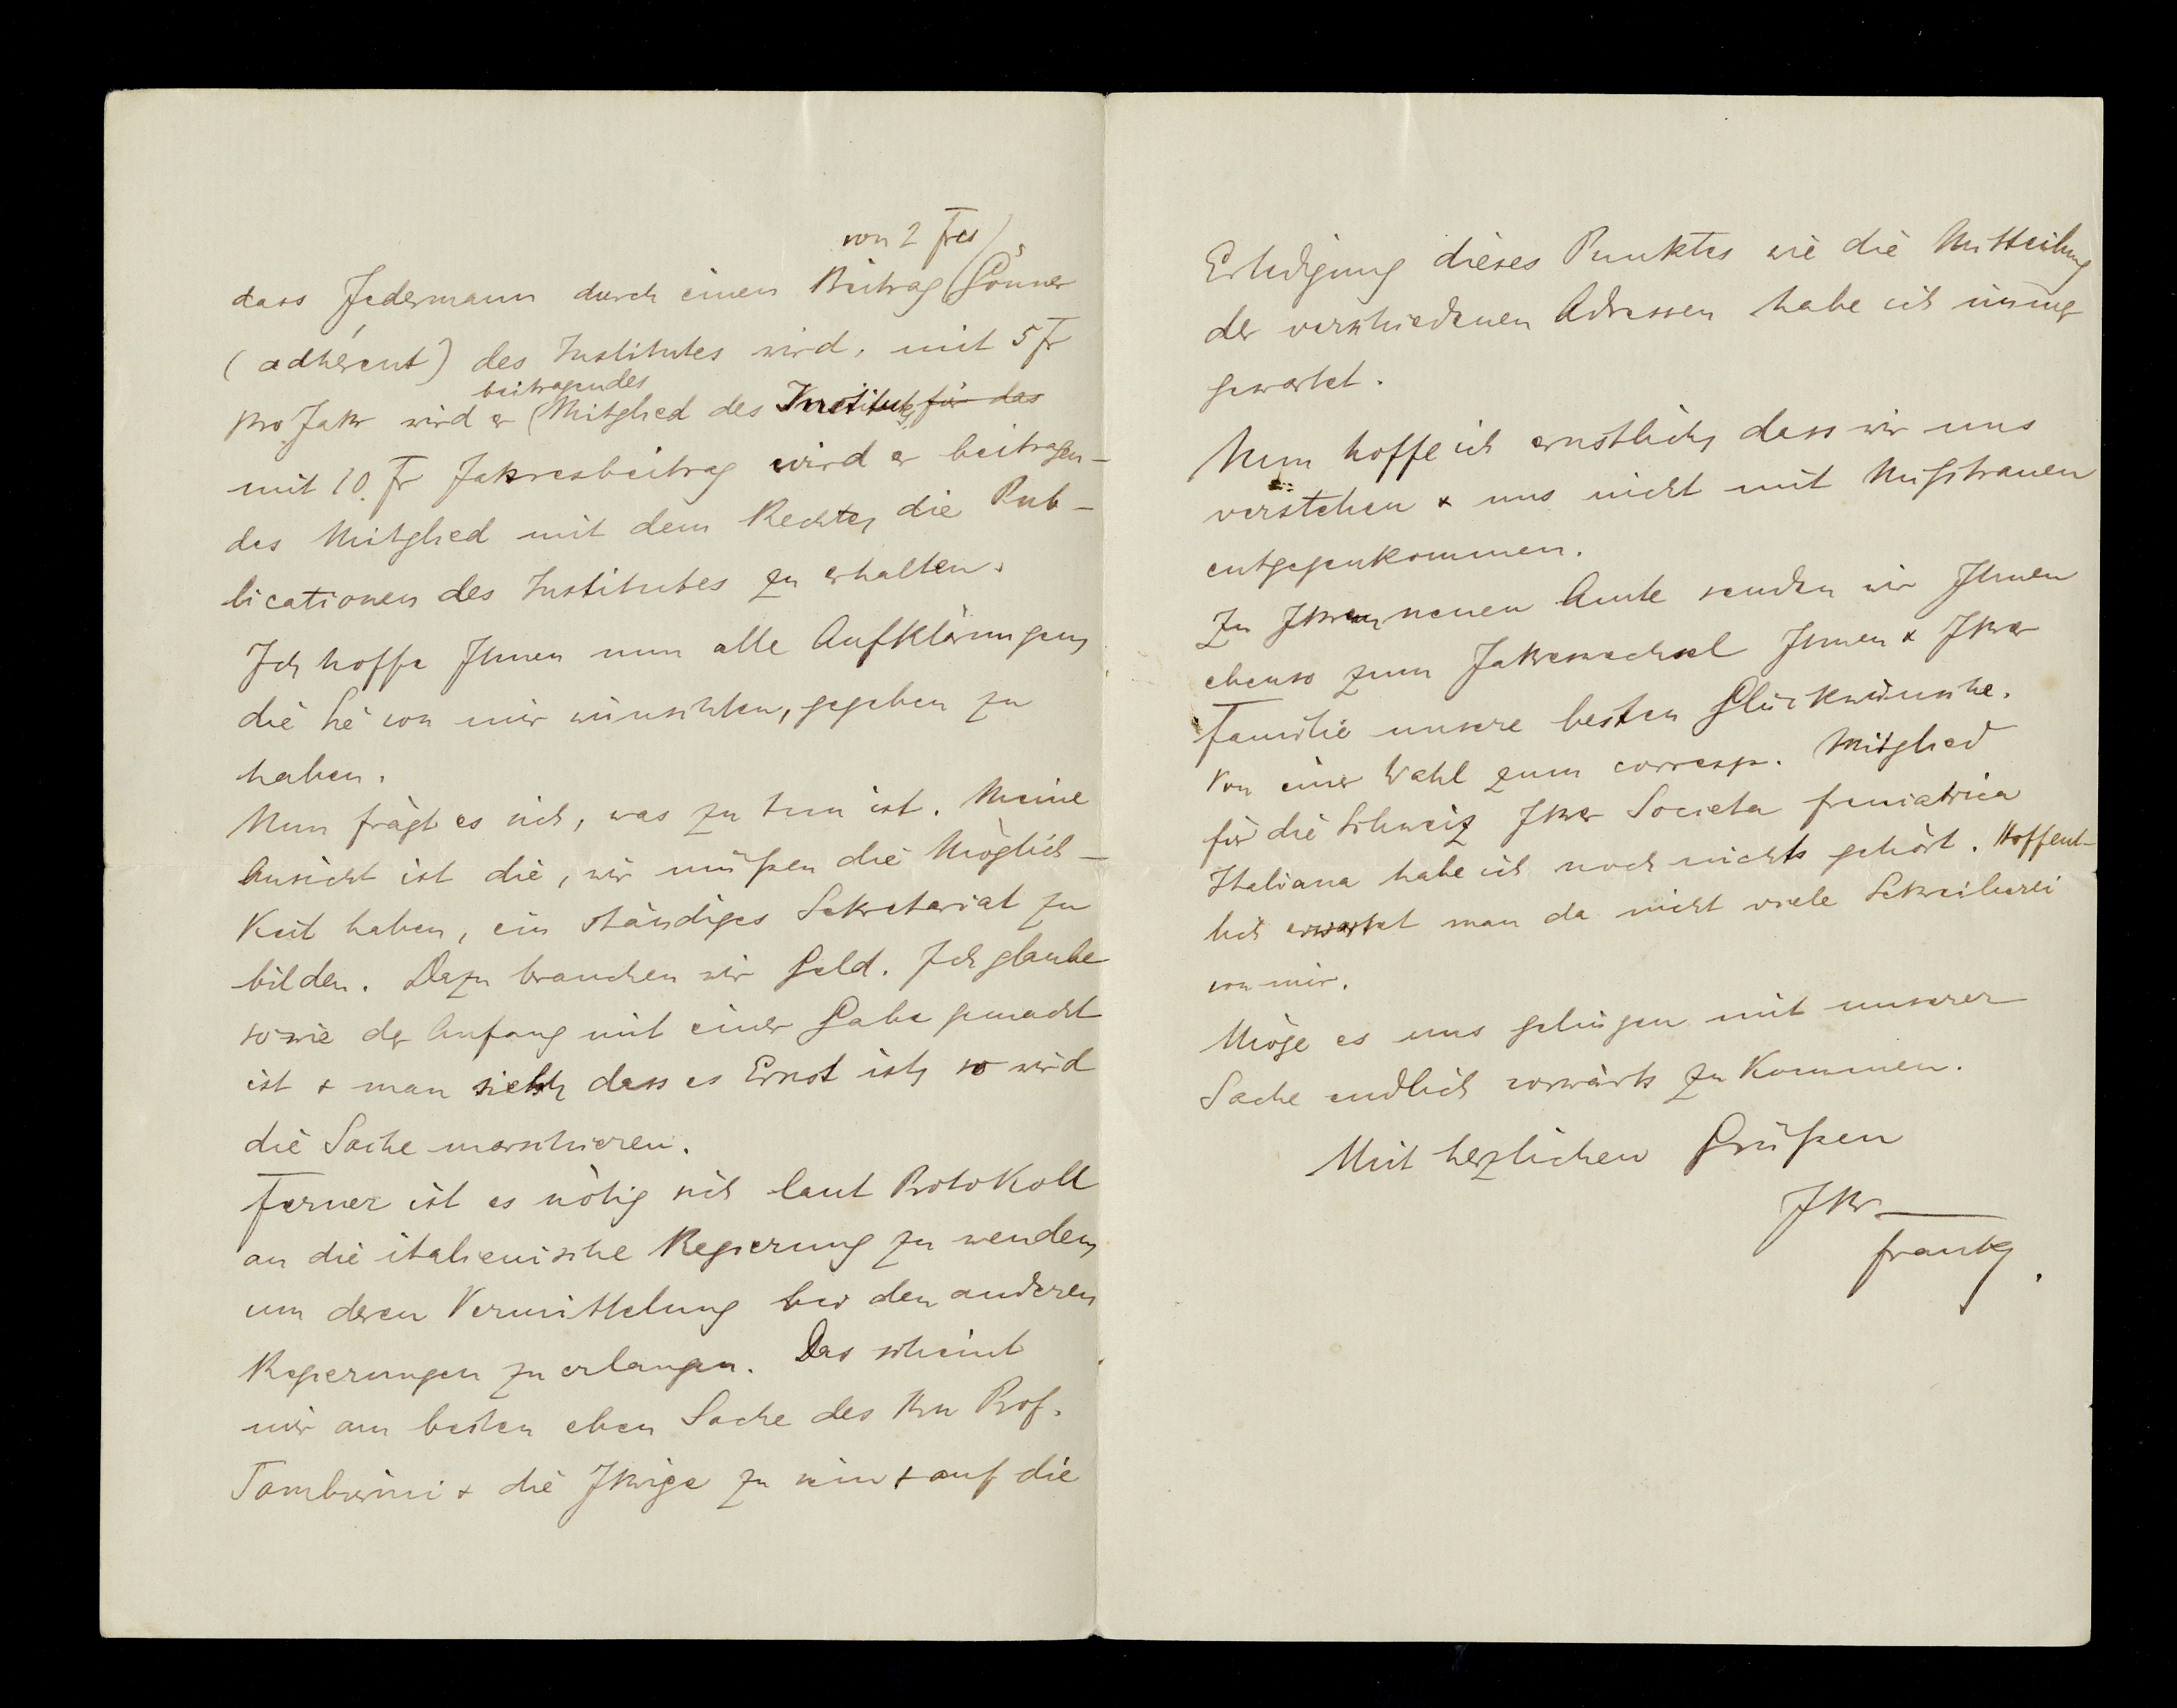 von 2 Frcs
dass Jedermann durch einen Beitrag Gönner
(adhérent) des Institutes wird, mit 5 Fr
beitragendes
pro Jahr wird er Mitglied des Instituts, für das
mit 10. Fr Jahresbeitrag wird er beitragen-
des Mitglied mit dem Rechte, die Pub-
licationen des Institutes zu erhalten.
Ich hoffe Ihnen nun alle Aufklärungen,
die Sie von mir wünschten, gegeben zu
haben.
Nun frägt es sich, was zu tun ist. Meine
Ansicht ist die, wir müßen die Möglich-
keit haben, ein ständiges Sekretariat zu
bilden. Dazu brauchen wir Geld. Ich glaube
sowie der Anfang mit einer Gabe gemacht
ist & man sieht, dass es Ernst ist, so wird
die Sache marschieren.
Ferner ist es nötig sich laut Protokoll
an die italienische Regierung zu wenden,
um deren Vermittelung bei den anderen
Regierungen zu erlangen. Das scheint
mir am besten eben Sache des Hrn Prof.
Tamburini & die Ihrige zu sein & auf die
Erledigung dieses Punktes wie die Mitteilung
der verschiedenen Adressen habe ich immer
gewartet.
Nun hoffe ich ernstlich, dass wir uns
verstehen & uns nicht mit Mißtrauen
entgegenkommen.
Zu Ihrem neuen Amte senden wir Ihnen
ebenso zum Jahreswechsel Ihnen & Ihrer
Familie unsere besten Glückwünsche.
Von einer Wahl zum corresp. Mitglied
für die Schweiz Ihrer Societa freniatrica
Italiana habe ich noch nichts gehört. Hoffent-
lich erwartet man da nicht viele Schreiberei
von mir.
Möge es uns gelingen mit unserer
Sache endlich vorwärts zu kommen.
Mit herzlichen Grüßen
Ihr
Frank.